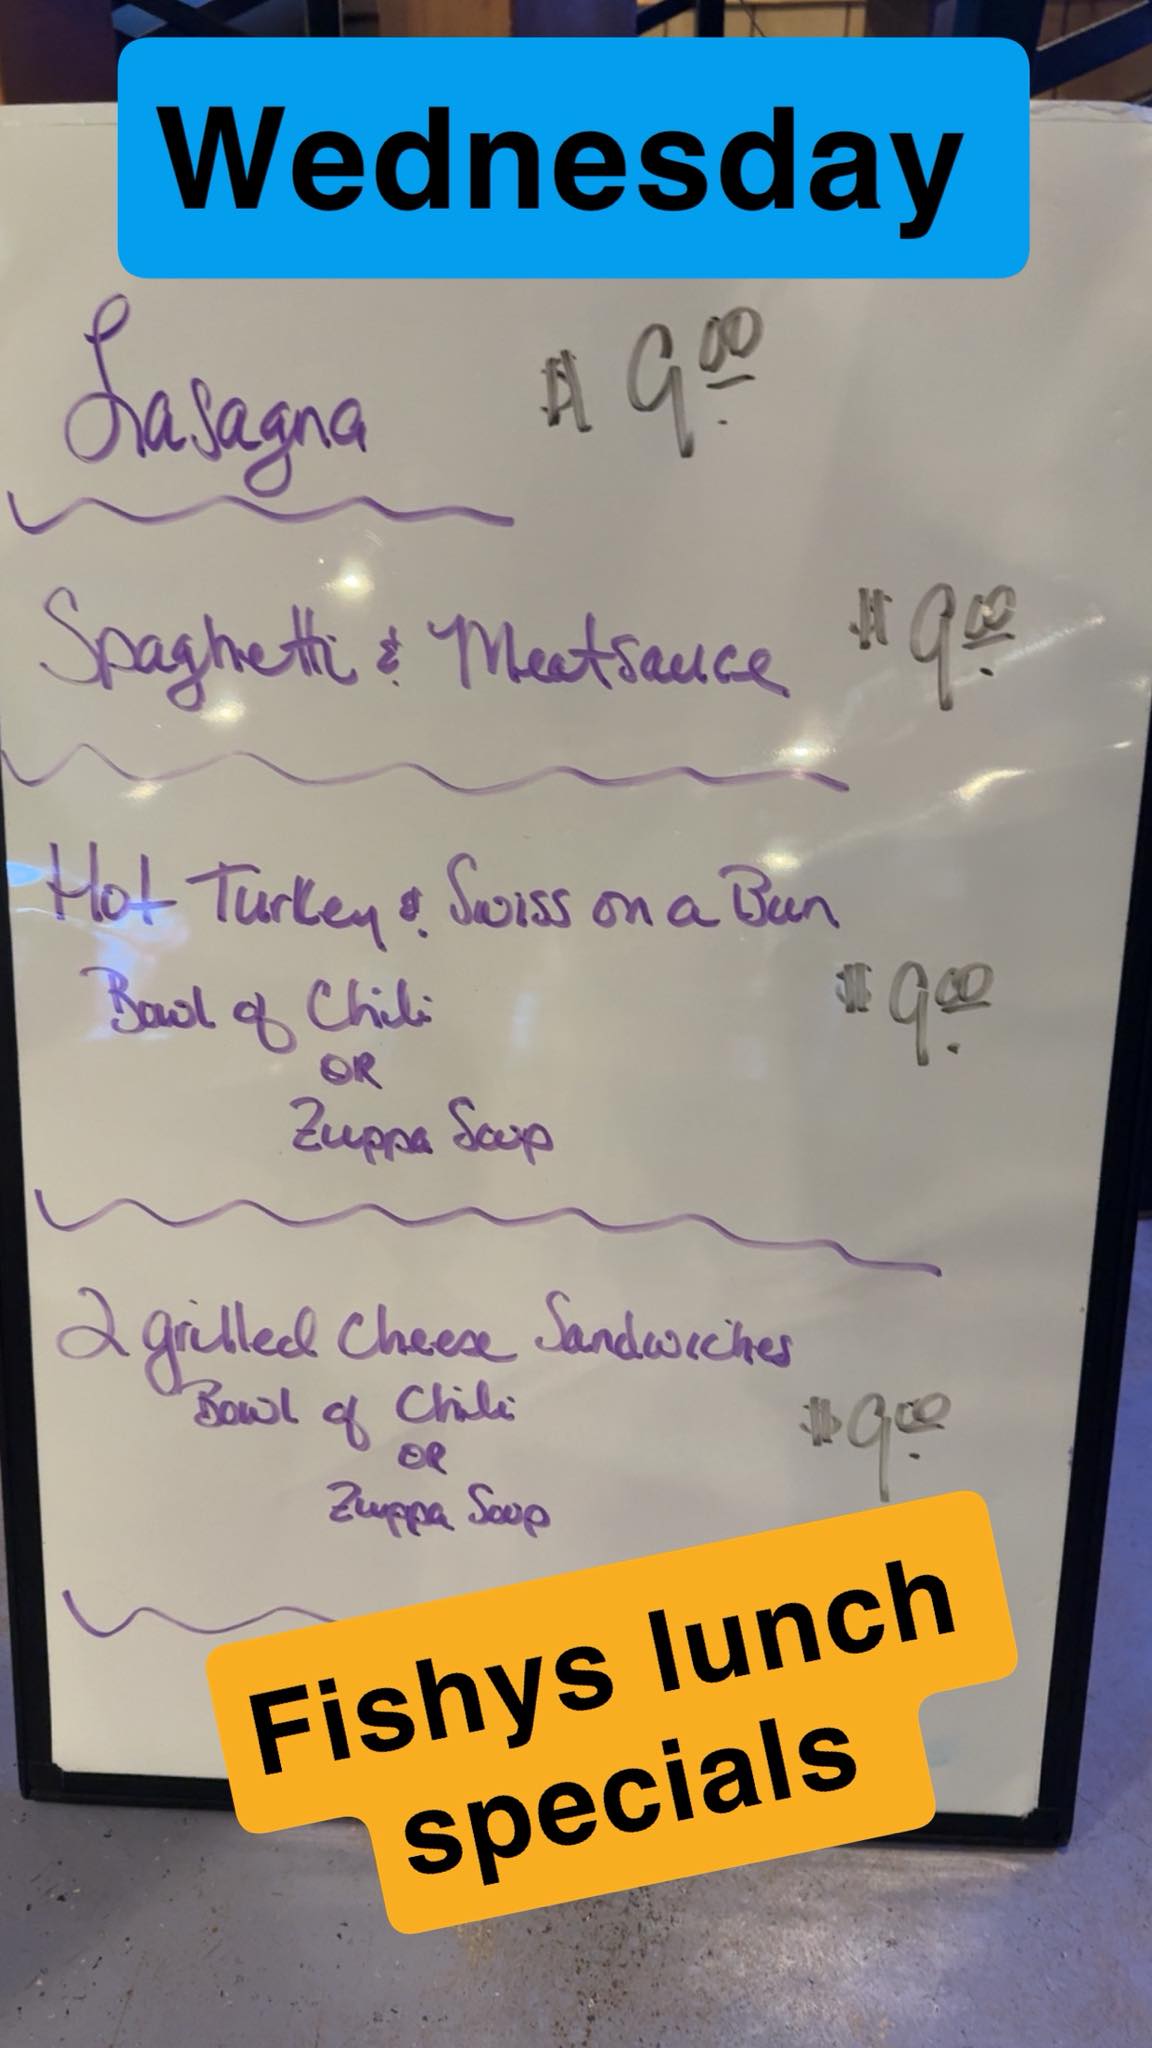 Wednesday
Lasagna $9.00
Spaghetti & Meatsauce $9.00
Hot Turkey & Swiss on a Bun
Bowl of Chili $9.00
OR
Zuppa Soup
2 grilled Cheese Sandwiches
Bowl of Chili $9.00
OR
Zuppa Soup
Fishys lunch
specials